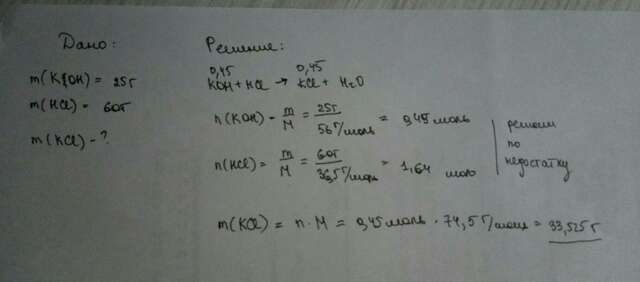 Дано:
m(KOH) = 25г
m(HCl) = 60г
m(KCl) - ?
Решение:
0,45 0,45
KOH + HCl → KCl + H₂O
n(KOH) = m/M = 25г/56г/моль = 0,45 моль
n(HCl) = m/M = 60г/36,5г/моль = 1,64 моль
решаем
по
недостатку
m(KCl) = n · M = 0,45 моль · 74,5 г/моль = 33,525 г